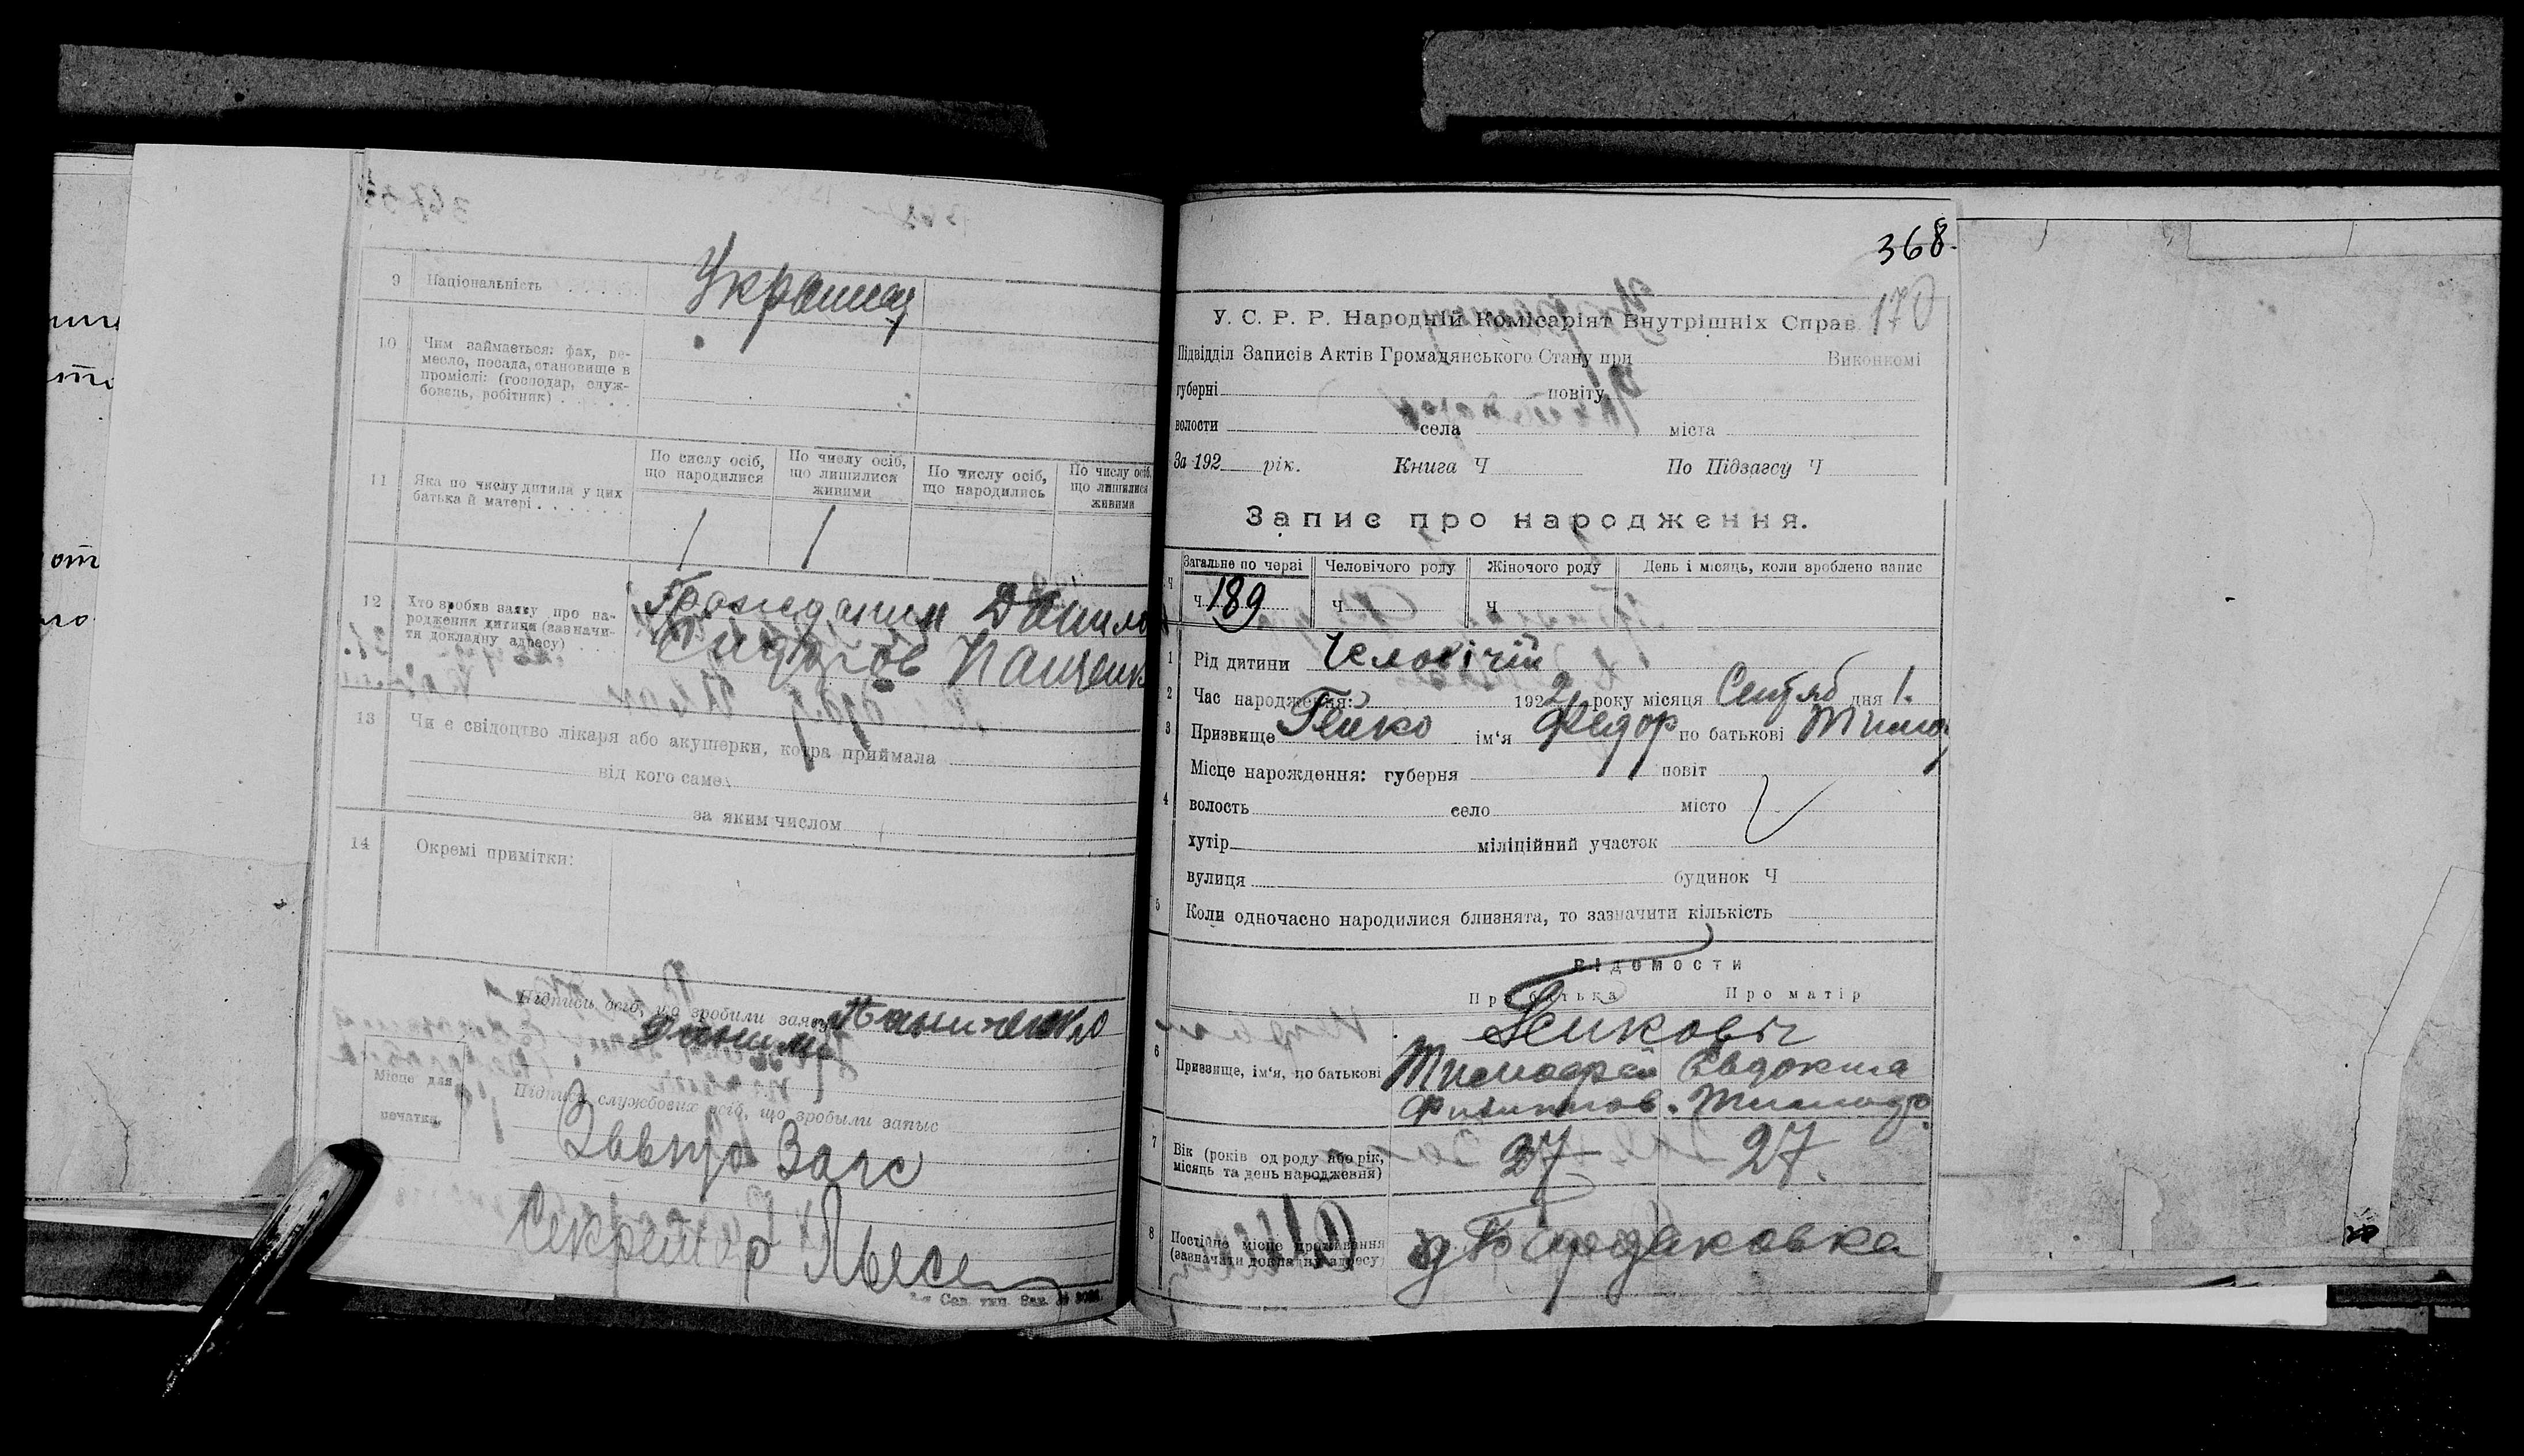 9 Національність
Украинец
10 Чим займається: фах, ре-
месло, посада, становище в
промислі: (господар, служ-
бовець, робітник)
11 Яка по числу дитина у цих
батька й матері
По сислу осіб,
що народилися
По числу осіб,
що лишилися
живими
По числу осіб,
що народились
По числу осіб,
що лишилися
живими
1 1
12 Хто зробив заяву про на-
родження дитини (зазначи-
ти докладну адресу)
Гражданин Данило
Сидоров Пащенко
13 Чи є свідоцтво лікаря або акушерки, котра приймала
від кого саме
за яким числом
14 Окремі примітки:
Підписи осіб, що зробили заяву
Данило Пащенко
Місце для
печатки.
Підписи службових осіб, що зробыли запыс
Завпідв Загс
Секретар
368.
170
У. С. Р. Р. Народній Комісаріят Внутрішніх Справ
Підвідділ Записів Актів Громадянського Стану при Виконкомі
губерні повіту
волости села міста
За 192 рік. Книга Ч По Підзагсу Ч
Запис про народження.
Загальне по черзі Человічого роду Жіночого роду День і місяць, коли зроблено запис
Ч 189 Ч Ч
1 Рід дитини Человічій
2 Час народження: 1922 року місяця Сентяб дня 1.
3 Призвище Гейко ім'я Федор по батькові Тимоф
Місце народження: губерня повіт
4 волость село місто
хутір міліційний участок
вулиця будинок Ч
5 Коли одночасно народилися близнята, то зазначити кількість
Відомости
Про батька Про матір
Гейкови
6 Призвище, ім'я, по батькові Тимофей Евдокия
Филипов. Тимофе
7 Вік (років од роду або рік,
місяць та день народження)
37 27.
8 Постійне місце проживання
(зазначати докладну адресу)